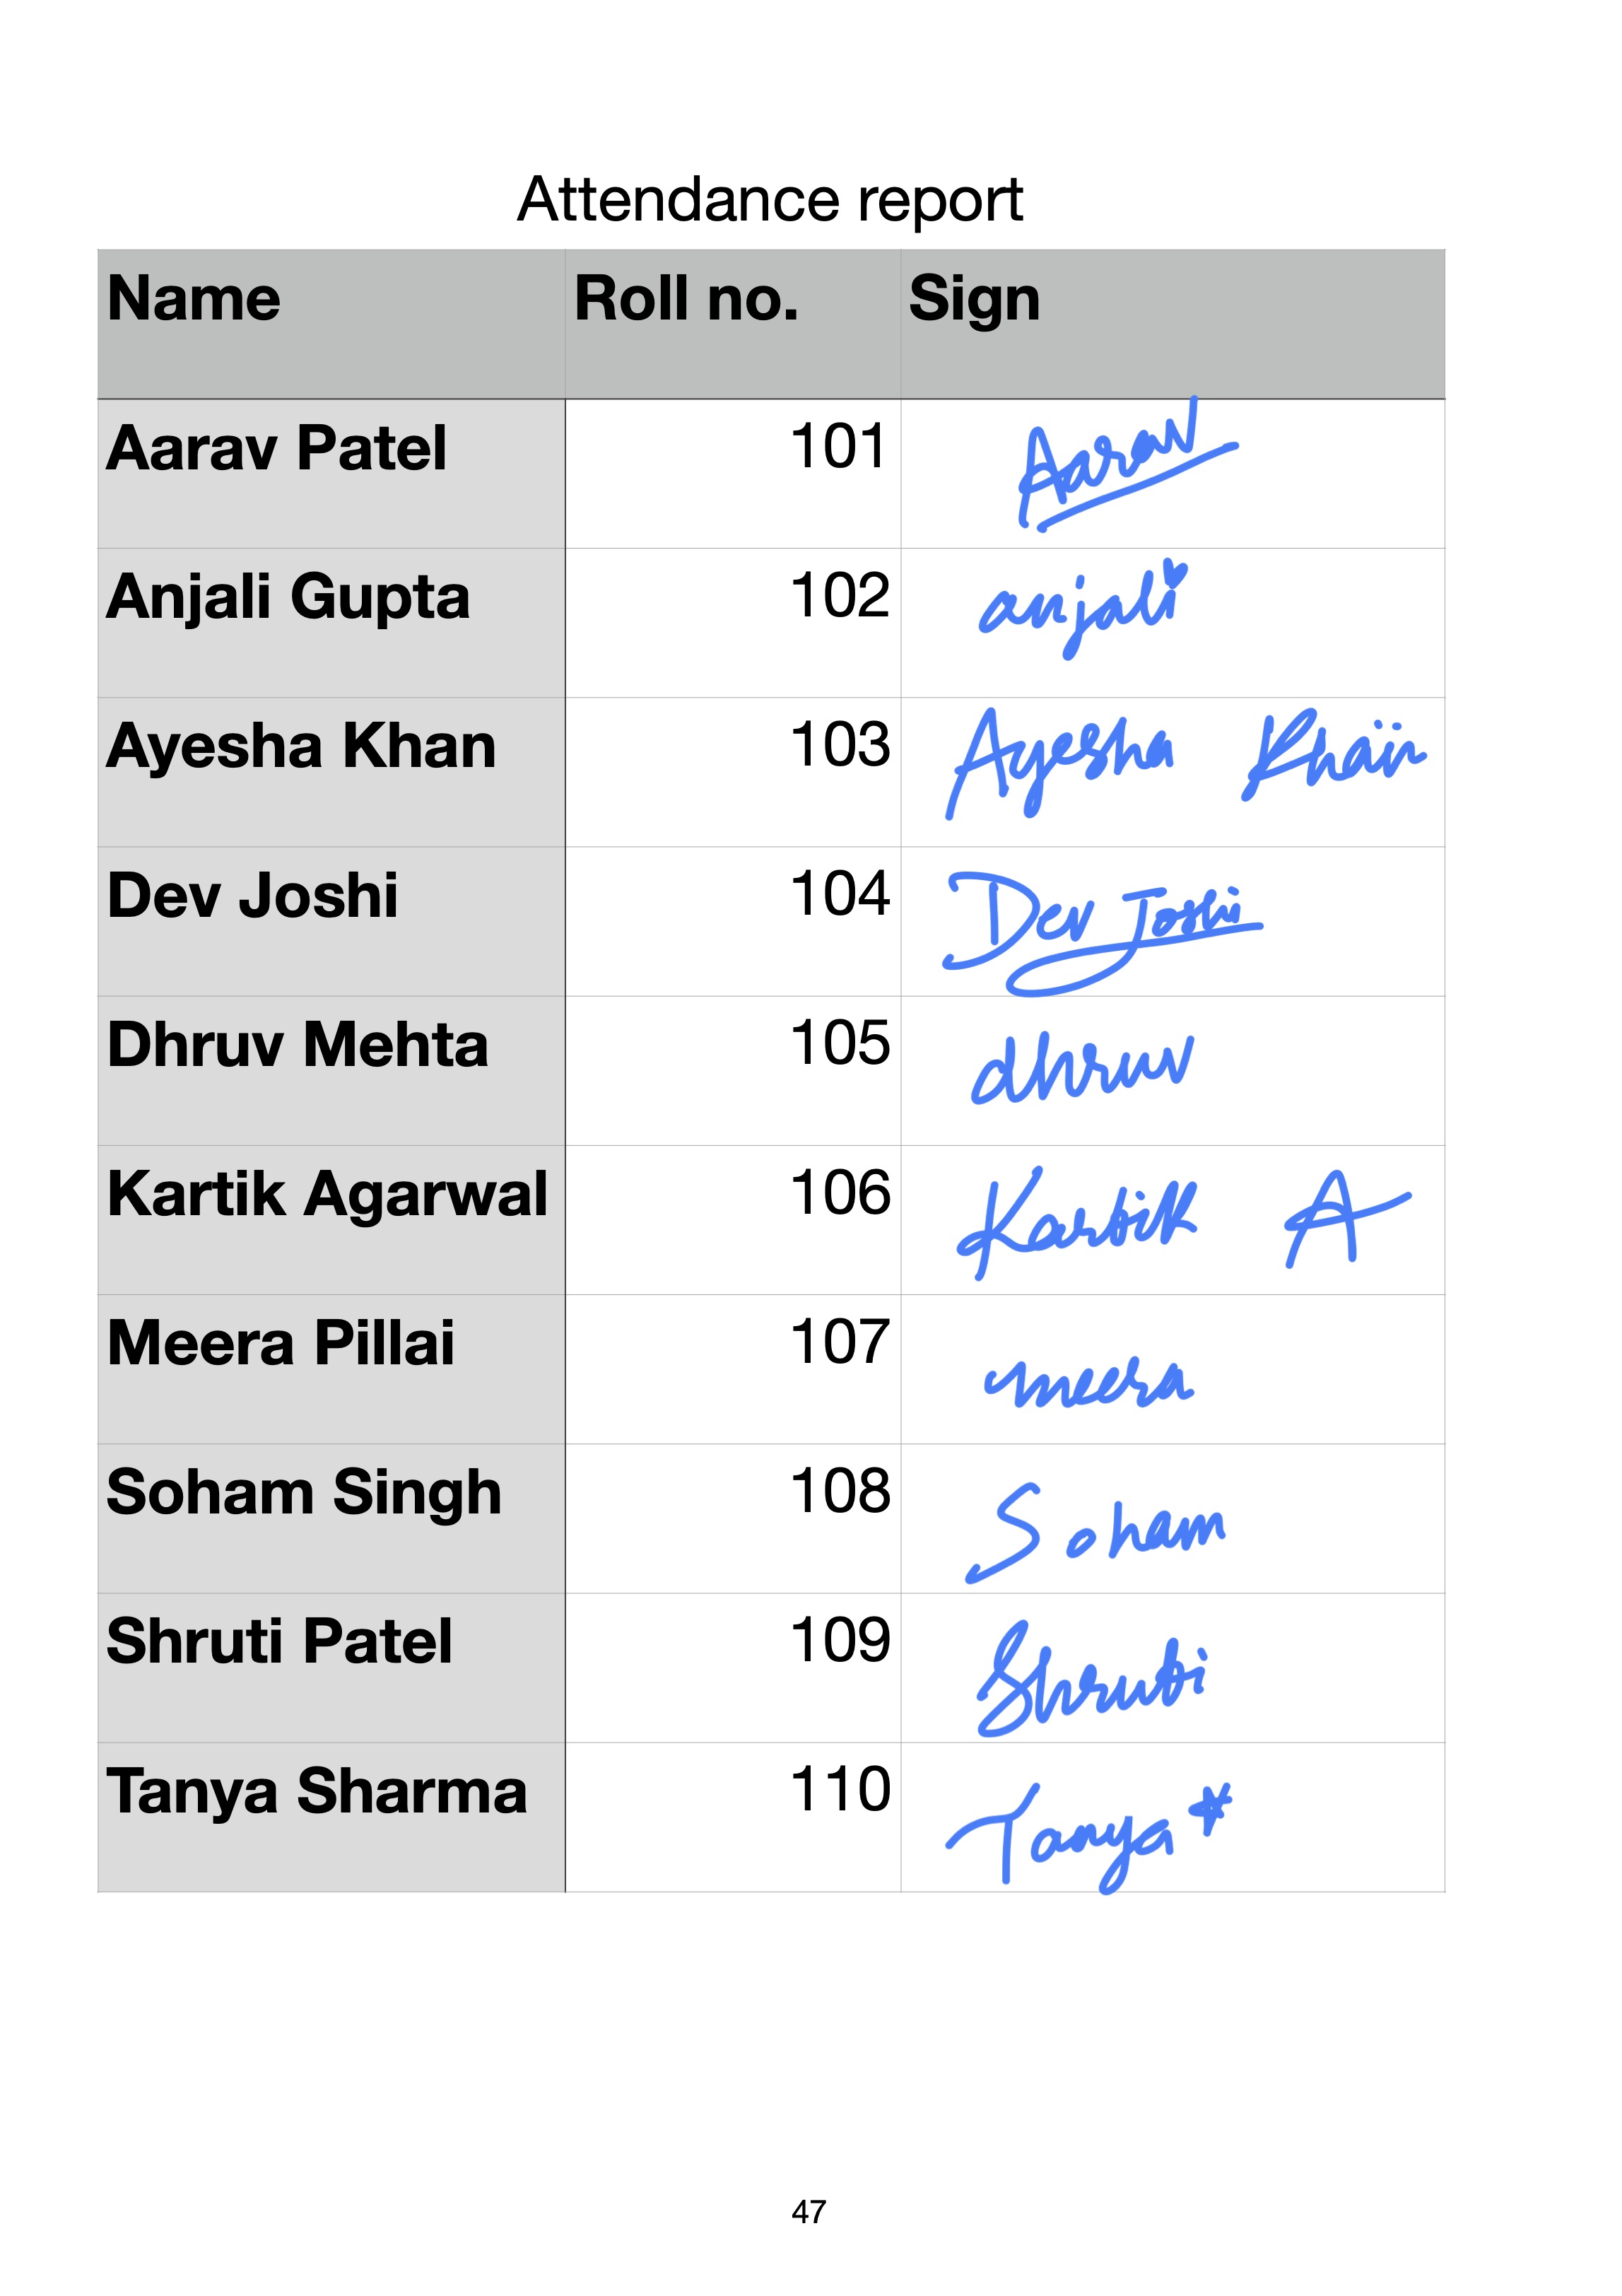 Attendance report
Name Roll no. Sign
Aarav Patel 101 Aarav
Anjali Gupta 102 anjali
Ayesha Khan 103 Ayesha Khan
Dev Joshi 104 Dev Joshi
Dhruv Mehta 105 dhruv
Kartik Agarwal 106 Kartik A
Meera Pillai 107 meera
Soham Singh 108 Soham
Shruti Patel 109 Shruti
Tanya Sharma 110 Tanya*
47